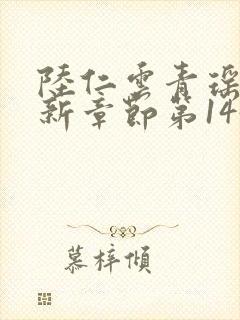 陸仁雲青瑶
新章節第14
慕梓傾